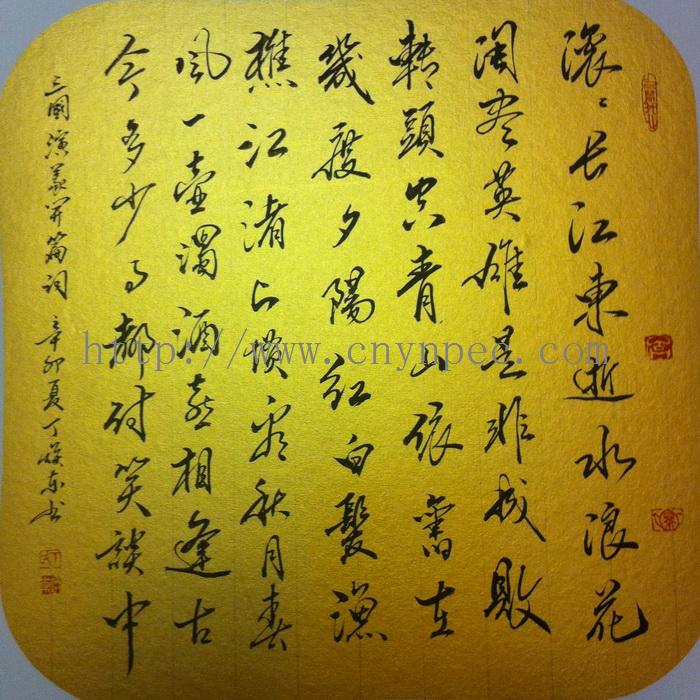 滚〻长江東逝水浪花
淘尽英雄是非成敗
轉頭空青山依舊在
幾度夕陽红白髮漁
樵江渚上惯看秋月春
風一壶濁酒喜相逢古
今多少事都付笑談中
三國演義开篇词 辛卯夏丁 东书
http://www.cnynpeq.com